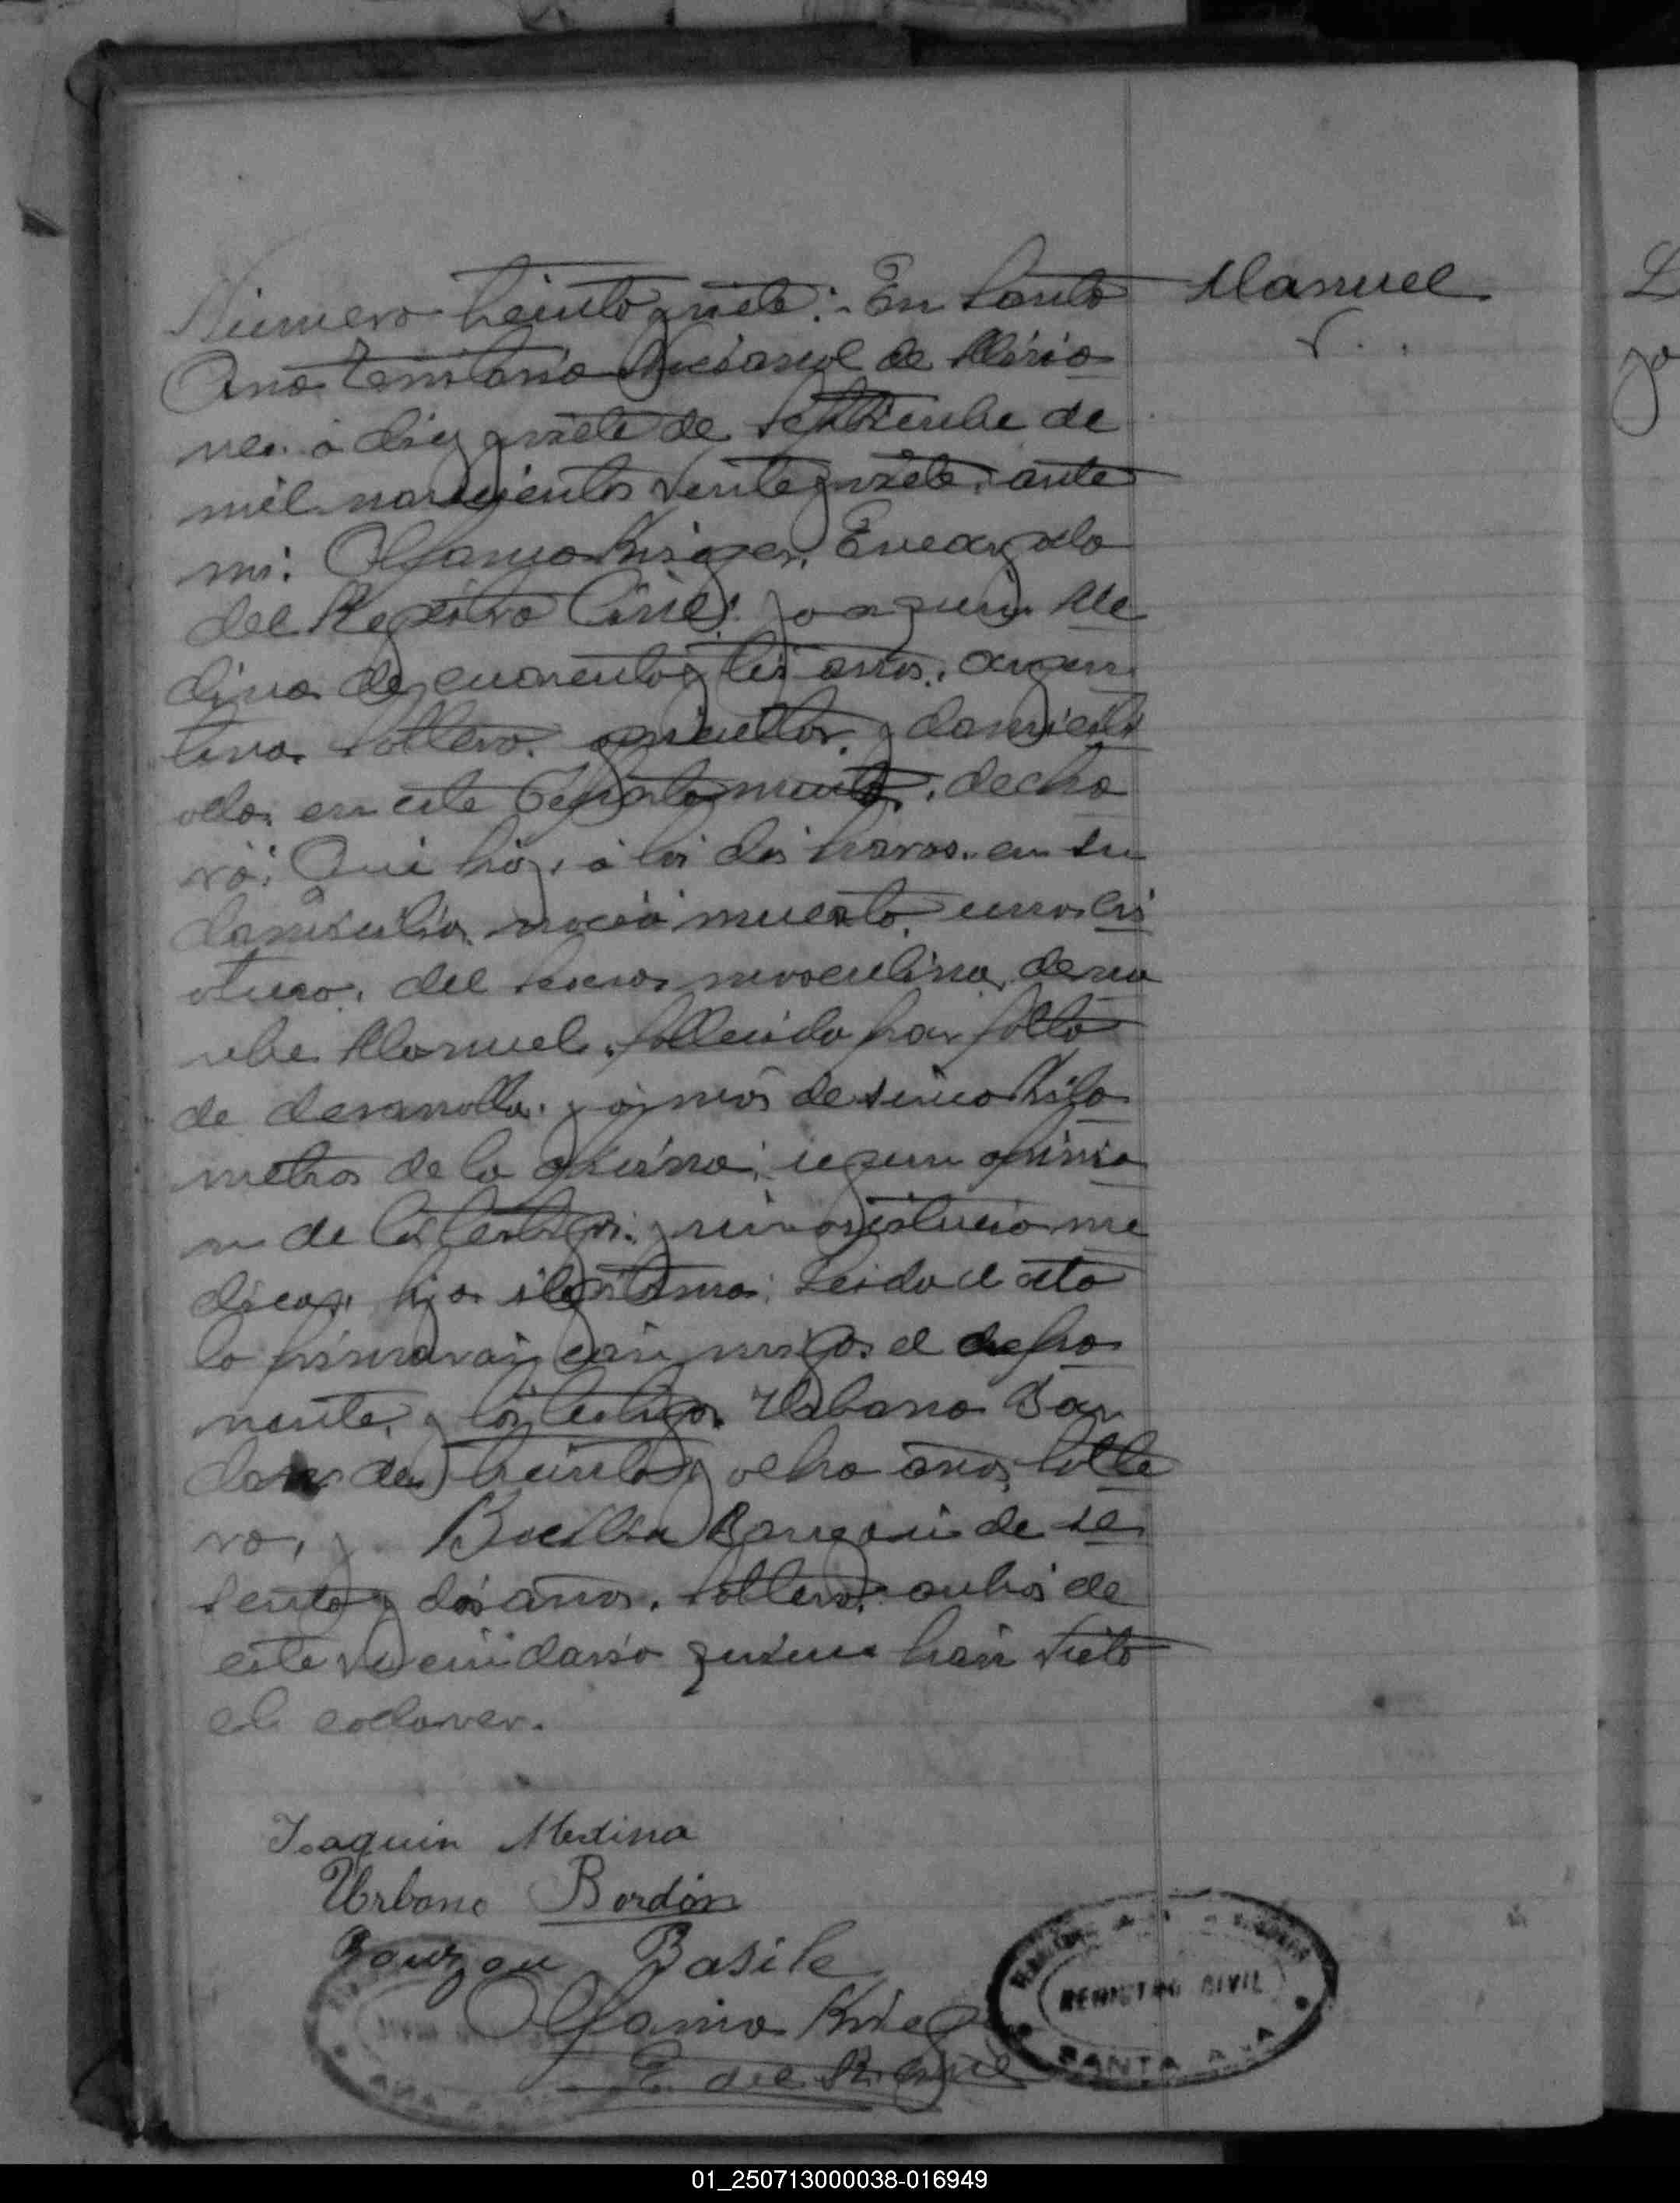 Numero treinta y siete: En Santa
Manuel
Ana territorio Nacional de Misio
nes. a diez y siete de septiembre de
mil novecientos veinte y siete. ante
mi. Olfanio Krieger. Encargado
del Registro Civil: Joaquin Me
dina de cuarenta y tres anos. argen
tino. soltero. agricultor. y domicili
ado. en este Departamento. decla
ró: Que hoy. á las dos horas. en su
domicilio. nació muerto. una cri
atura. del sexo masculino. de no
mbre Manuel. fallecido por falta
de desarrollo. y á mas de sinco Kilo
metros de la oficina. segun opinio
n de los testigos. y sin asistencia me
dica. hijo ilegitimo. Leida el acta
la firmaron con migo el depo
nente. y los testigos. Urbano Bor
don de treinta y ocho anos. solte
ro. y Bacilio Bauzon de se
senta y dos anos. soltero. anbos de
este vecindario quienes han visto
el cadaver.
Joaquin Medina
Urbano Bordón
Bauzon Basile
Olfanio Krieg
E. del R. Civil
REGISTRO CIVIL
SANTA ANA